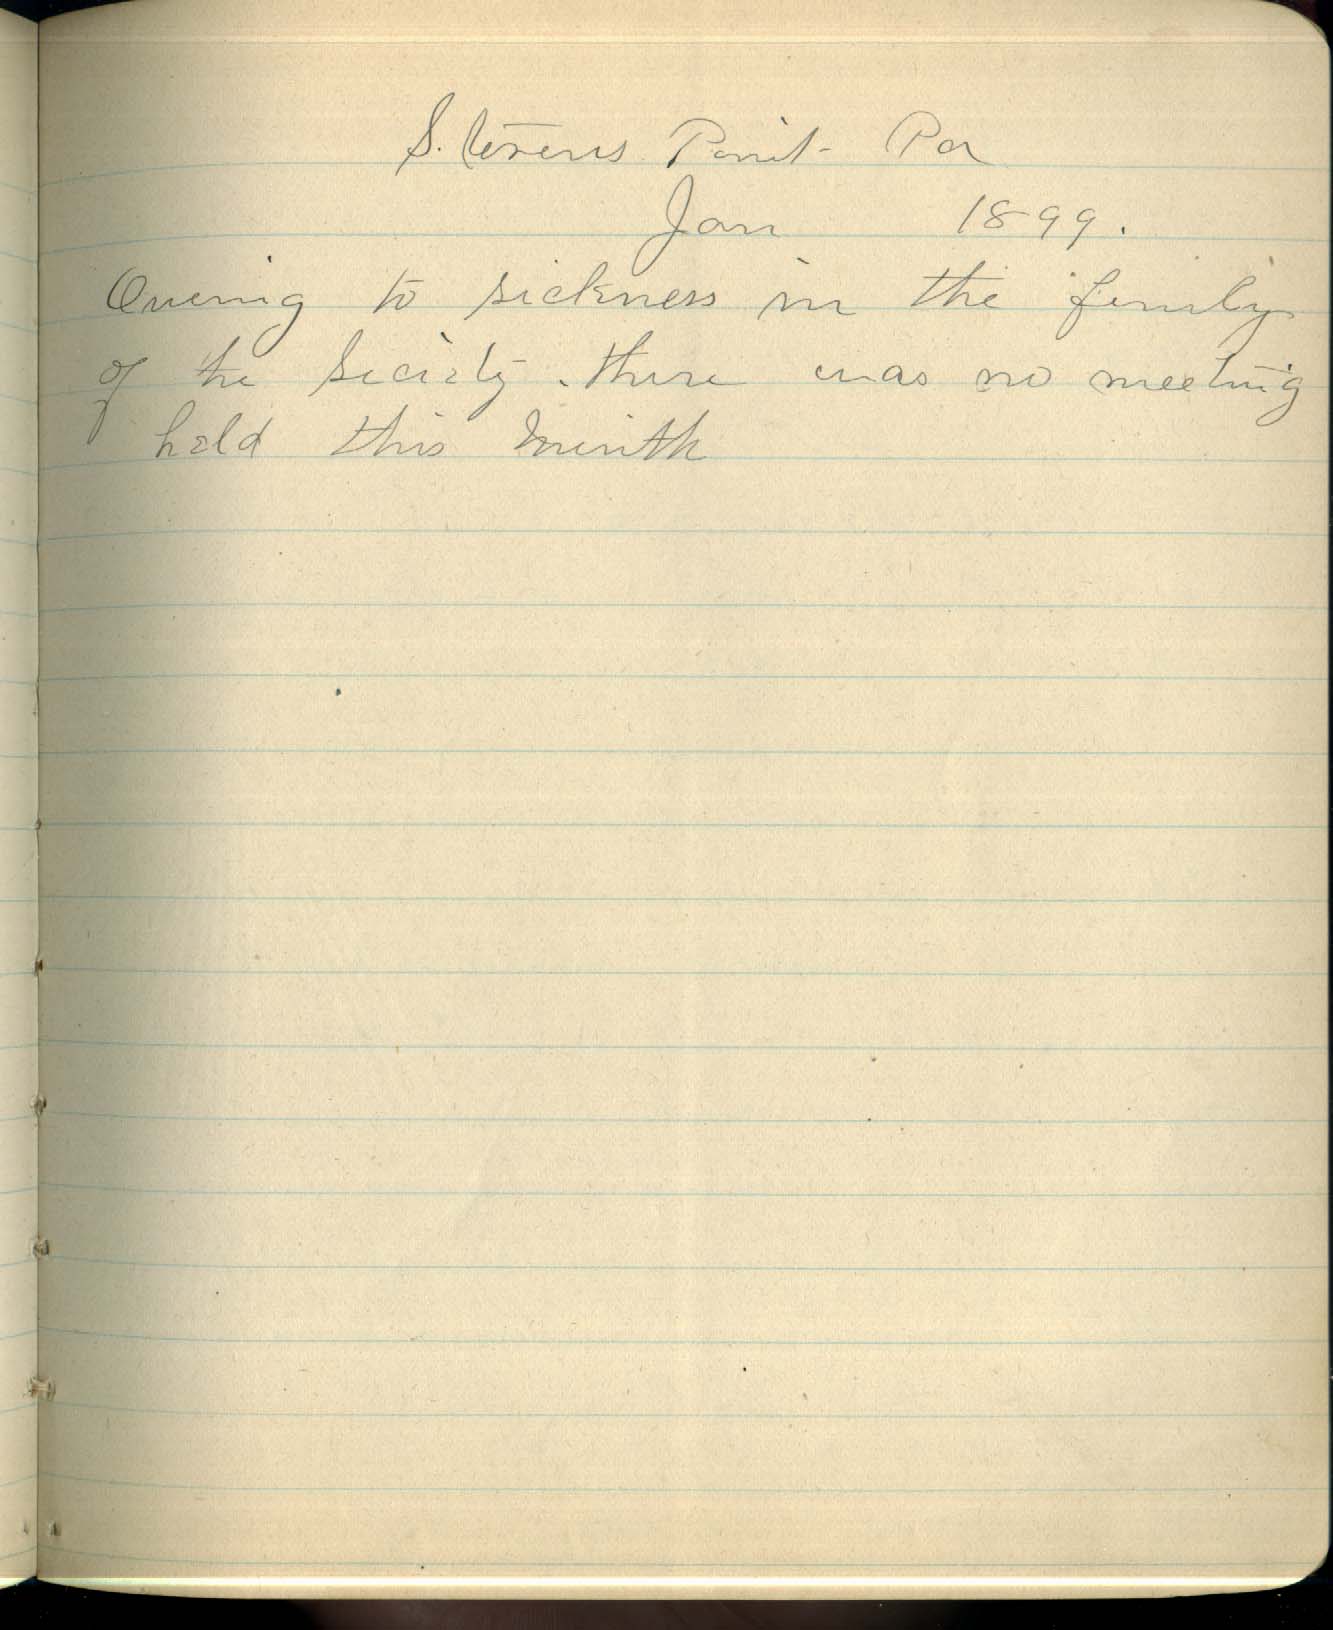 Stevens Point Pa
Jan 1899.
Oweing to sickness in the family
of the Seciety. there was no meeting
held this month